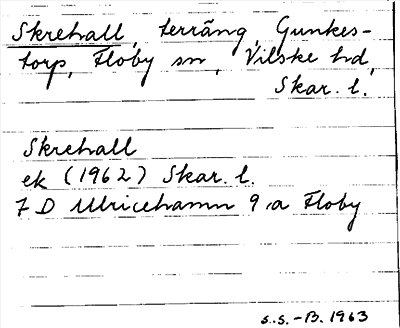 Skrehall, terräng, Gunkes-
torp, Floby sn, Vilske hd,
Skar. l.
Skrehall
ek (1962) Skar. l.
7 D Ulricehamn 9 a Floby
S.S.-B. 1963